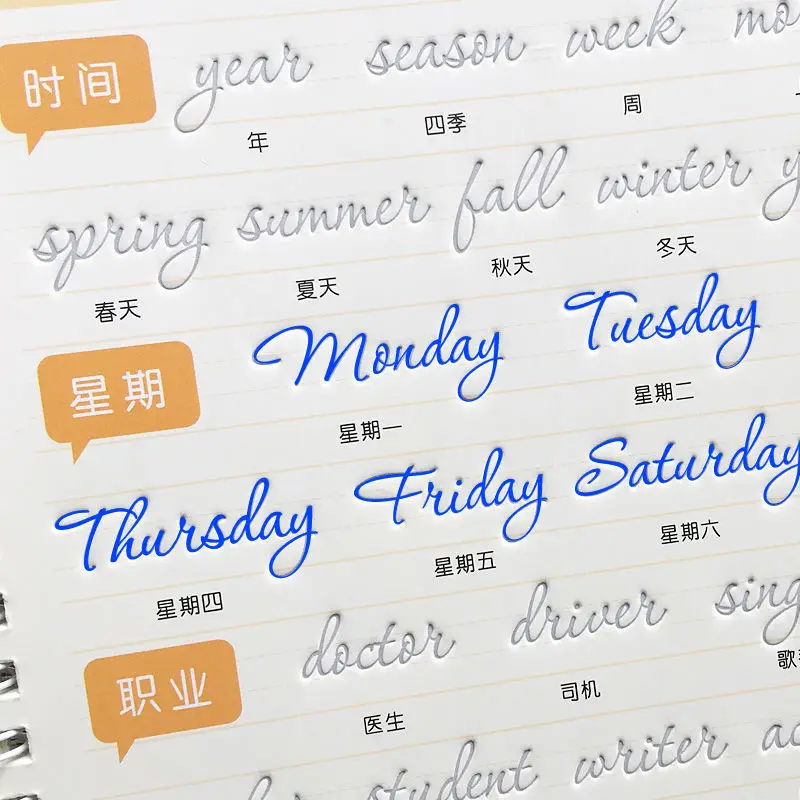 时间 year season week
年 四季 周
spring summer fall winter
春天 夏天 秋天 冬天
星期 Monday Tuesday
星期一 星期二
Thursday Friday Saturday
星期四 星期五 星期六
职业 doctor driver
医生 司机
student writer